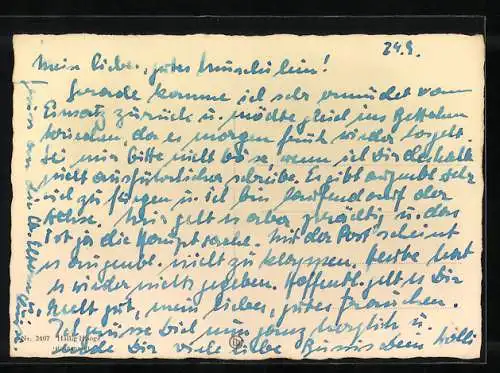 24.8.
Mein liebes, gutes Muschilein!
Gerade komme ich sehr ermüdet vom
Einsatz zurück u. möchte gleich ins Bettchen
kriechen, da es morgen früh wieder losgeht.
Sei mir bitte nicht böse, wenn ich Dir deshalb
nicht ausführlicher schreibe. Es gibt augenbl. sehr
viel zu u. ich bin laufend auf der
Achse. Mir geht es aber prächtig u. das
ist ja die Hauptsache. Mit der Post scheint
es augenbl. nicht zu klappen. Heute hat
es wieder nichts gegeben. Hoffentl. geht es Dir
recht gut, mein liebes, gutes Frauchen.
Ich grüsse Dich nun ganz herzlich u.
sende Dir viele liebe Bussis Dein
Nr. 2407 Hallig Hooge